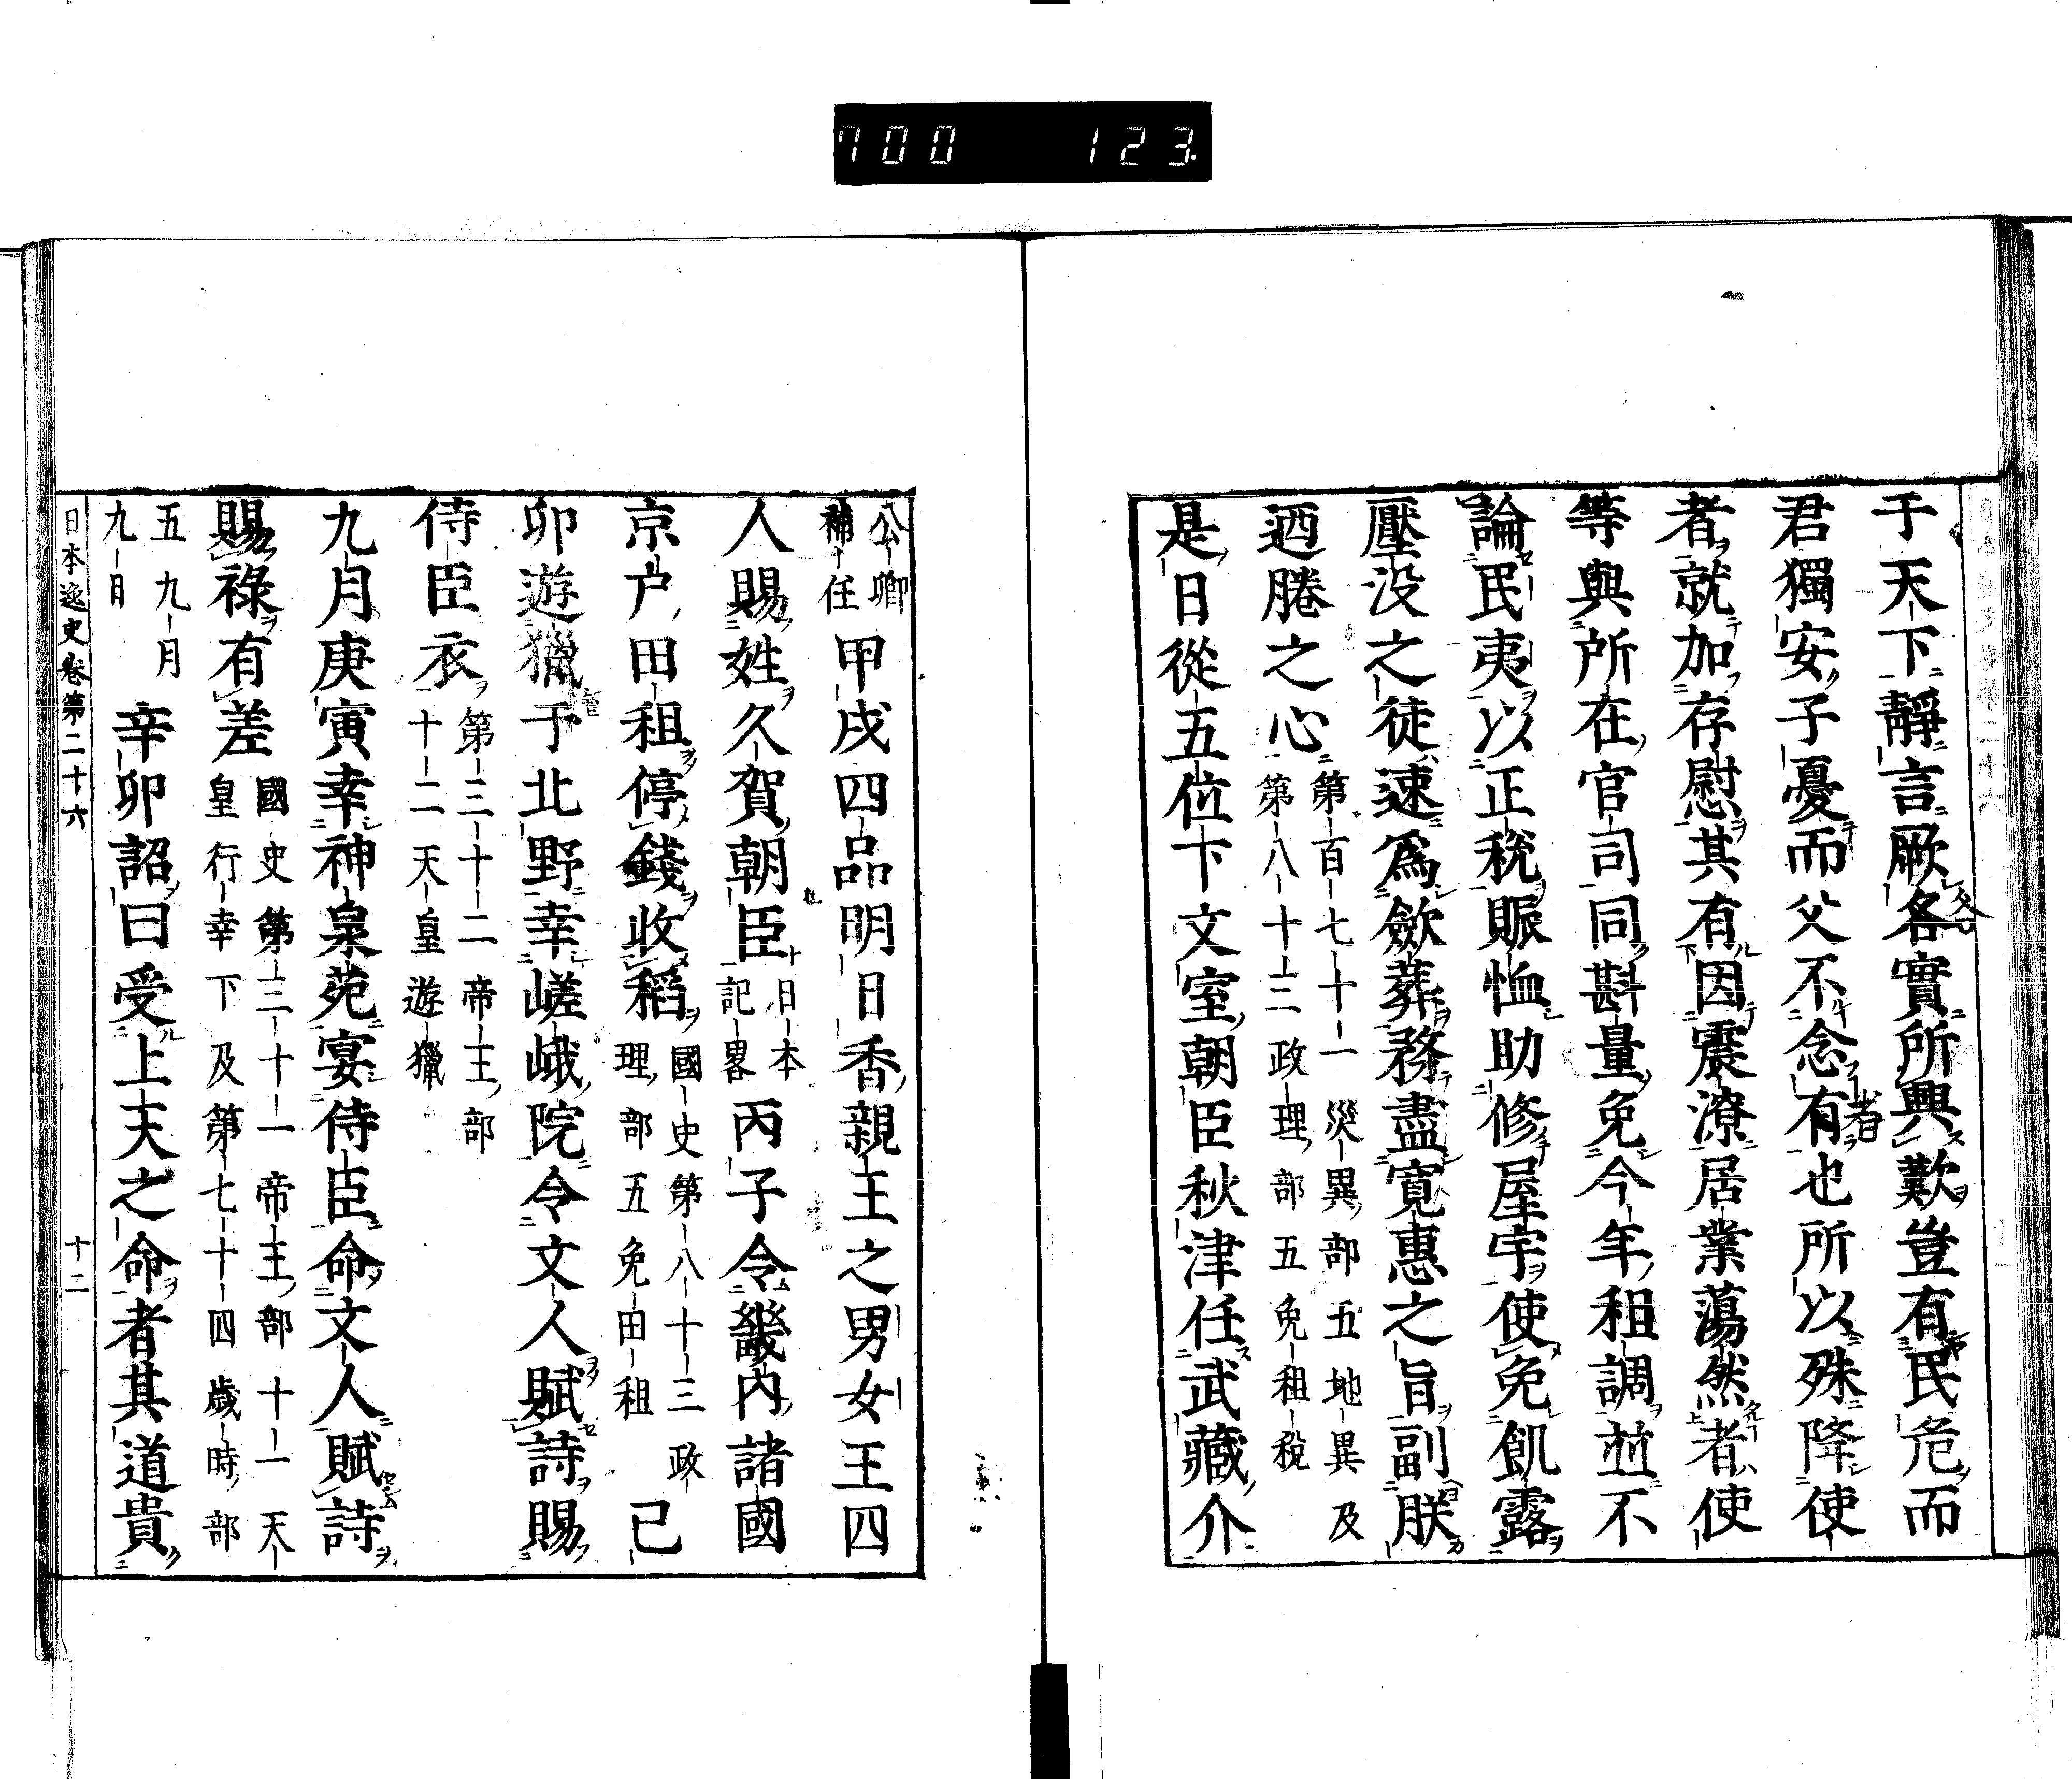 700 123.
于天下靜言厥各實所興歎豈有民危而
君獨安子憂而父不念有也所以殊降使
者就加存慰其有因震潦居業蕩然者使
等與所在官司同斟量免今年租調並不
論民夷以正稅賑恤助修屋宇使免飢露
壓没之徒速爲歛葬務盡寛惠之旨副朕
迺睠之心 第百七十一災異部五地異及
第八十二政理部五免租稅
是日從五位下文室朝臣秋津任武藏介
公卿
補任 甲戌四品明日香親王之男女王四
人賜姓久賀朝臣 日本
記畧 丙子令畿内諸國
京户田租停錢收稻 國史第八十三政
理部五免田租 己
卯遊獵于北野幸嵯峨院令文人賦詩賜
侍臣衣 第三十二帝王部
十二天皇遊獵
九月庚寅幸神泉苑宴侍臣命文人賦詩
賜祿有差 國史第三十一帝王部十一天
皇行幸下及第七十四歳時部
五九月
九日 辛卯詔曰受上天之命者其道貴
日本逸史卷第二十六 十二